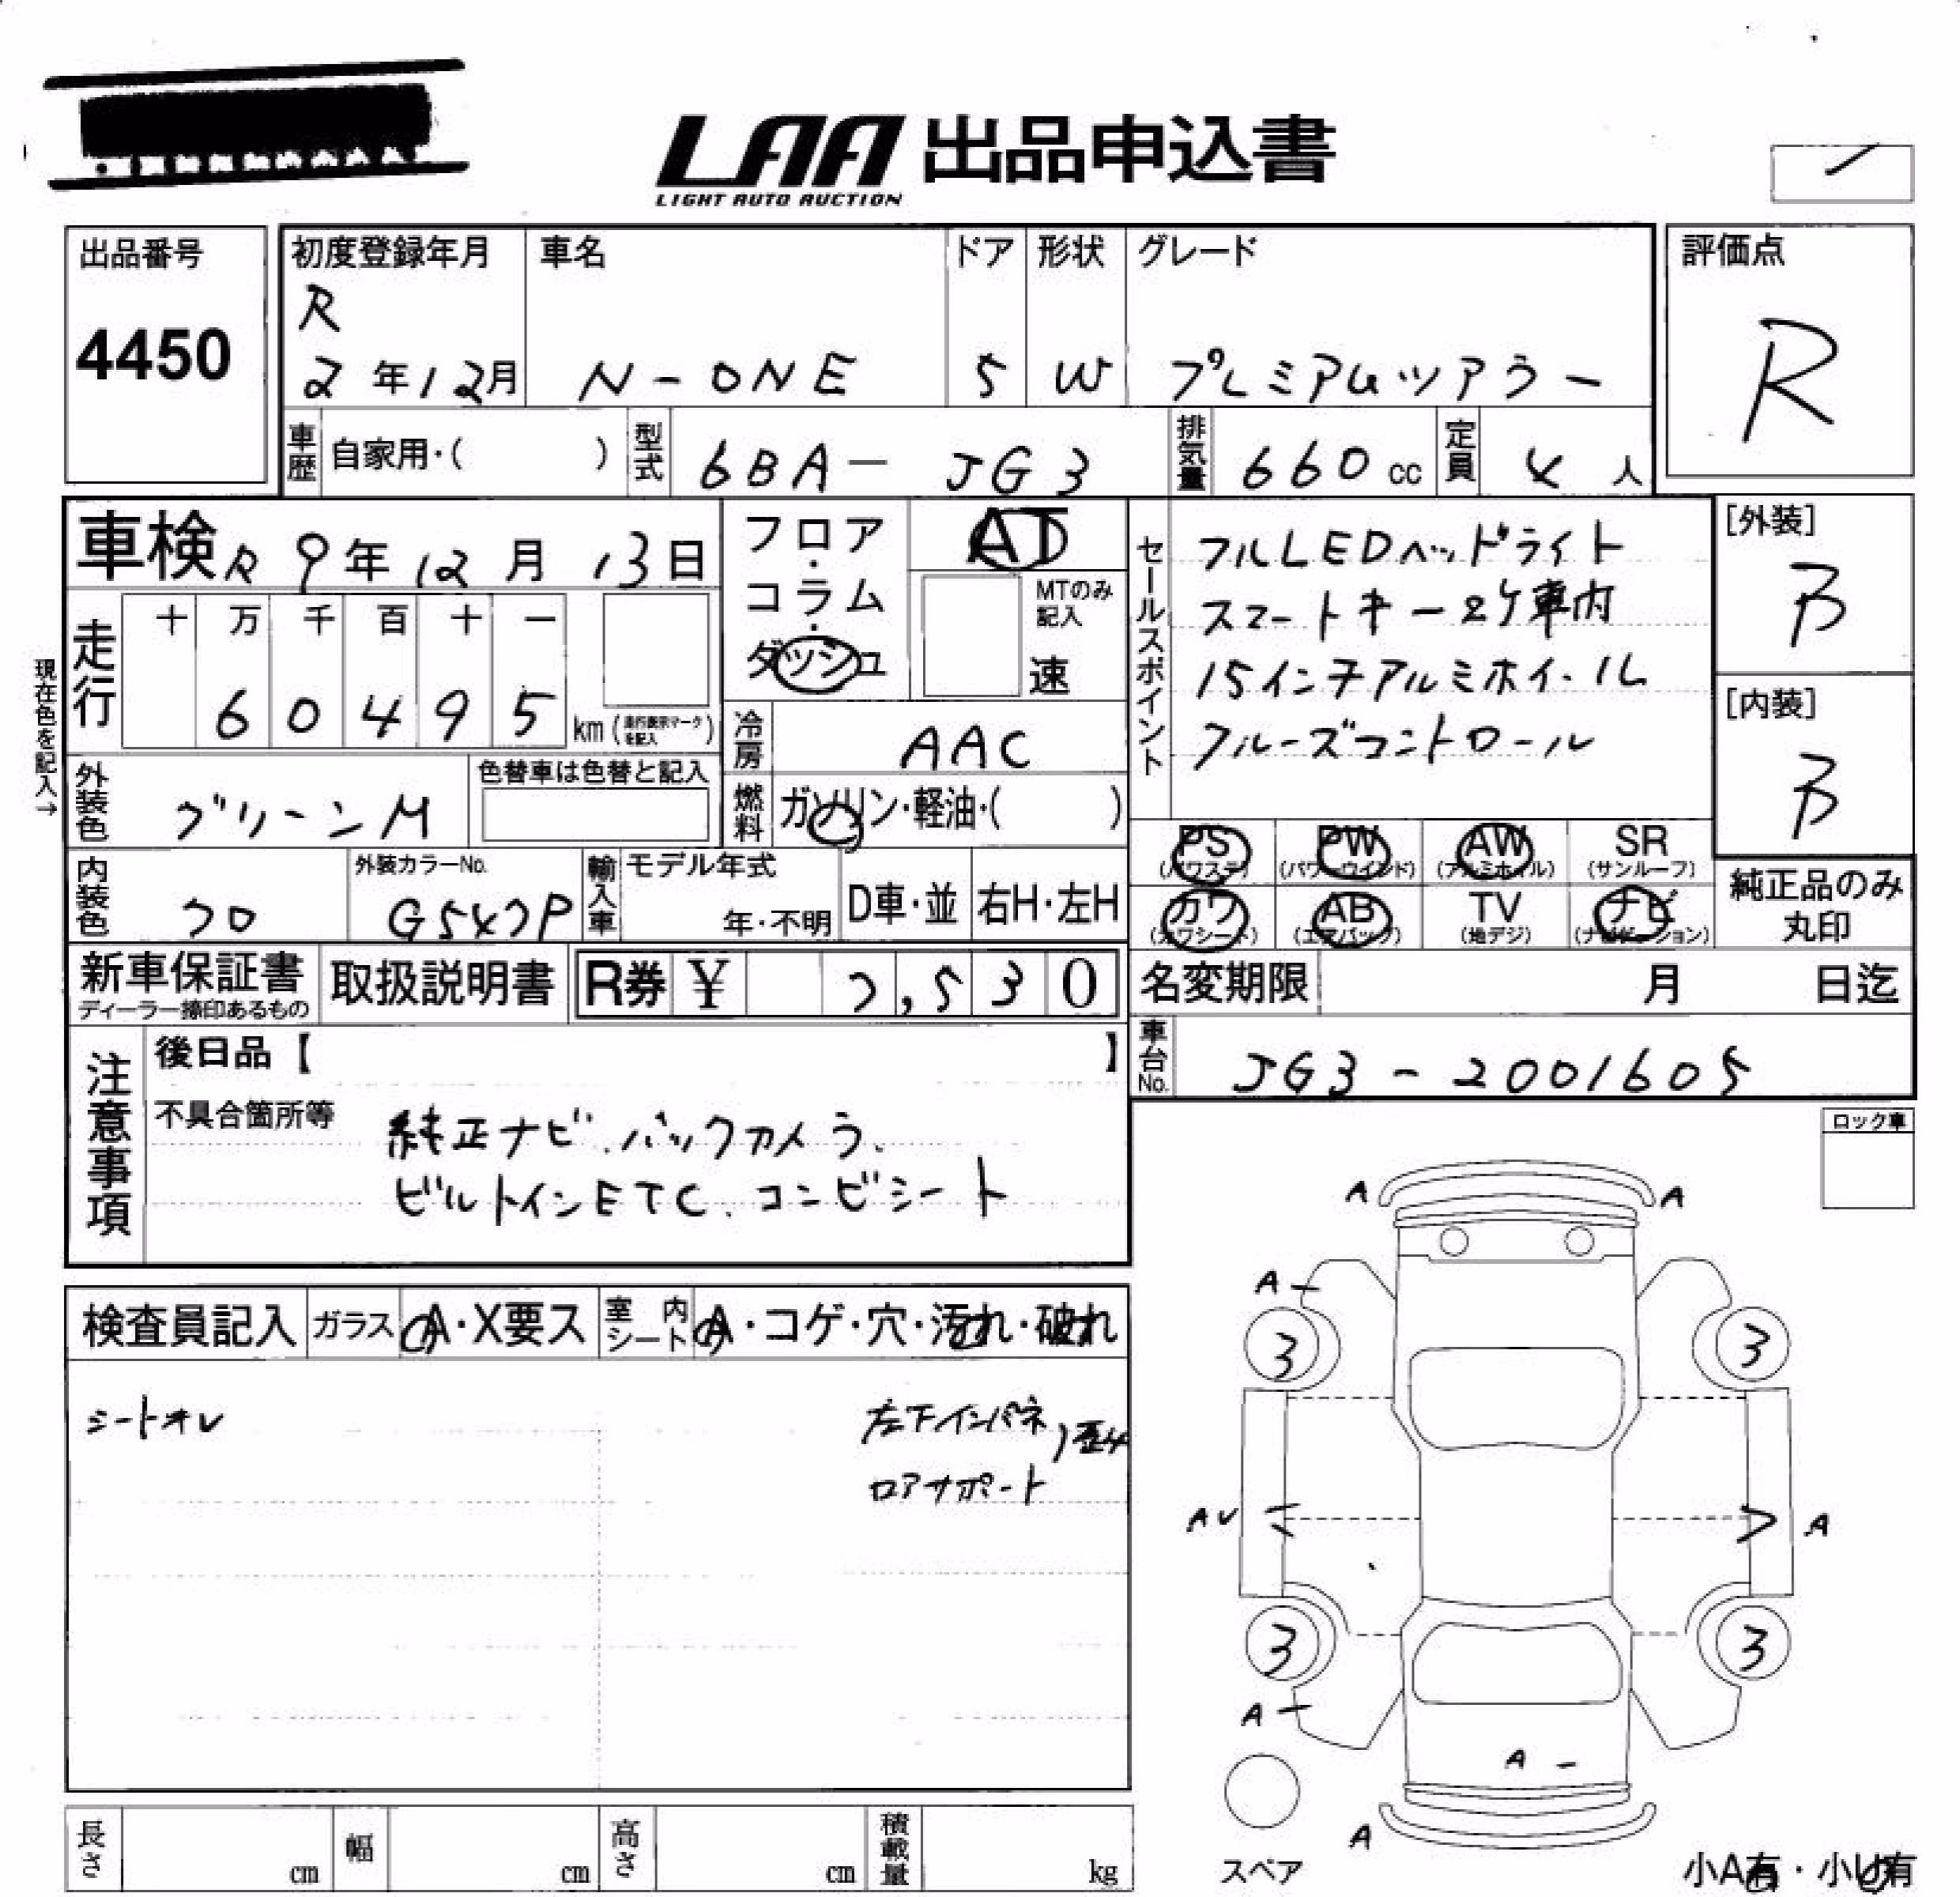 LAA 出品申込書
LIGHT AUTO AUCTION
出品番号
4450
初度登録年月
R
2年12月
車名
N-ONE
ドア
5
形状
W
グレード
プレミアムツアラー
評価点
R
車歴 自家用・( )
型式 6BA-JG3
排気量 660cc
定員 4人
車検 R9年12月13日
フロア・コラム・ダッシュ
AT
MTのみ記入
速
セールスポイント
フルLEDヘッドライト
スマートキー2ケ車内
15インチアルミホイール
クルーズコントロール
[外装]
B
[内装]
B
現在色を記入→
走行
十 万 千 百 十 一
6 0 4 9 5 km (走行表示マークを記入)
冷房 AAC
燃料 ガソリン・軽油・( )
外装色 グリーンM
色替車は色替と記入
内装色 クロ
外装カラーNo.
輸入車
モデル年式
年・不明
D車・並
右H・左H
PS (パワステ)
PW (パワーウインド)
AW (アルミホイル)
SR (サンルーフ)
カワ (カワシート)
AB (エアバッグ)
TV (地デジ)
ナビ (ナビゲーション)
純正品のみ丸印
新車保証書
ディーラー捺印あるもの
取扱説明書
R券 ¥ 7,530
名変期限 月 日迄
車台No. JG3-2001605
注意事項
後日品【 】
不具合箇所等
純正ナビ、バックカメラ、
ビルトインETC、コンビシート
ロック車
検査員記入
ガラス A・X要ス
室内シート A・コゲ・穴・汚れ・破れ
シートオレ
左下インパネ
ロアサポート
A A
A-
3 3
AV A
3 3
A-
A-
A
スペア
小A有・小U有
長さ cm
幅 cm
高さ cm
積載量 kg